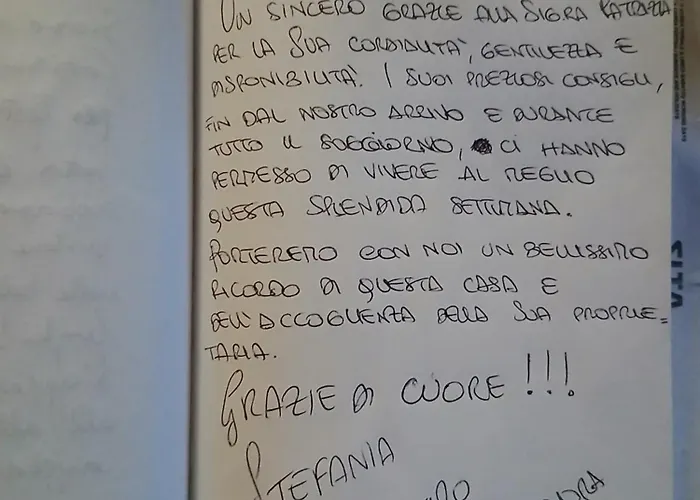 UN SINCERO GRAZIE ALLA SIG.RA
PER LA SUA CORDIALITA', GENTILEZZA E
DISPONIBILITA'. I SUOI PREZIOSI CONSIGLI,
FIN DAL NOSTRO ARRIVO E DURANTE
TUTTO IL SOGGIORNO, CI HANNO
PERMESSO DI VIVERE AL MEGLIO
QUESTA SPLENDIDA SETTIMANA.
PORTEREMO CON NOI UN BELLISSIMO
RICORDO DI QUESTA CASA E
DELL'ACCOGLIENZA DELLA SUA PROPRIE=
TARIA.
GRAZIE DI CUORE !!!
STEFANIA